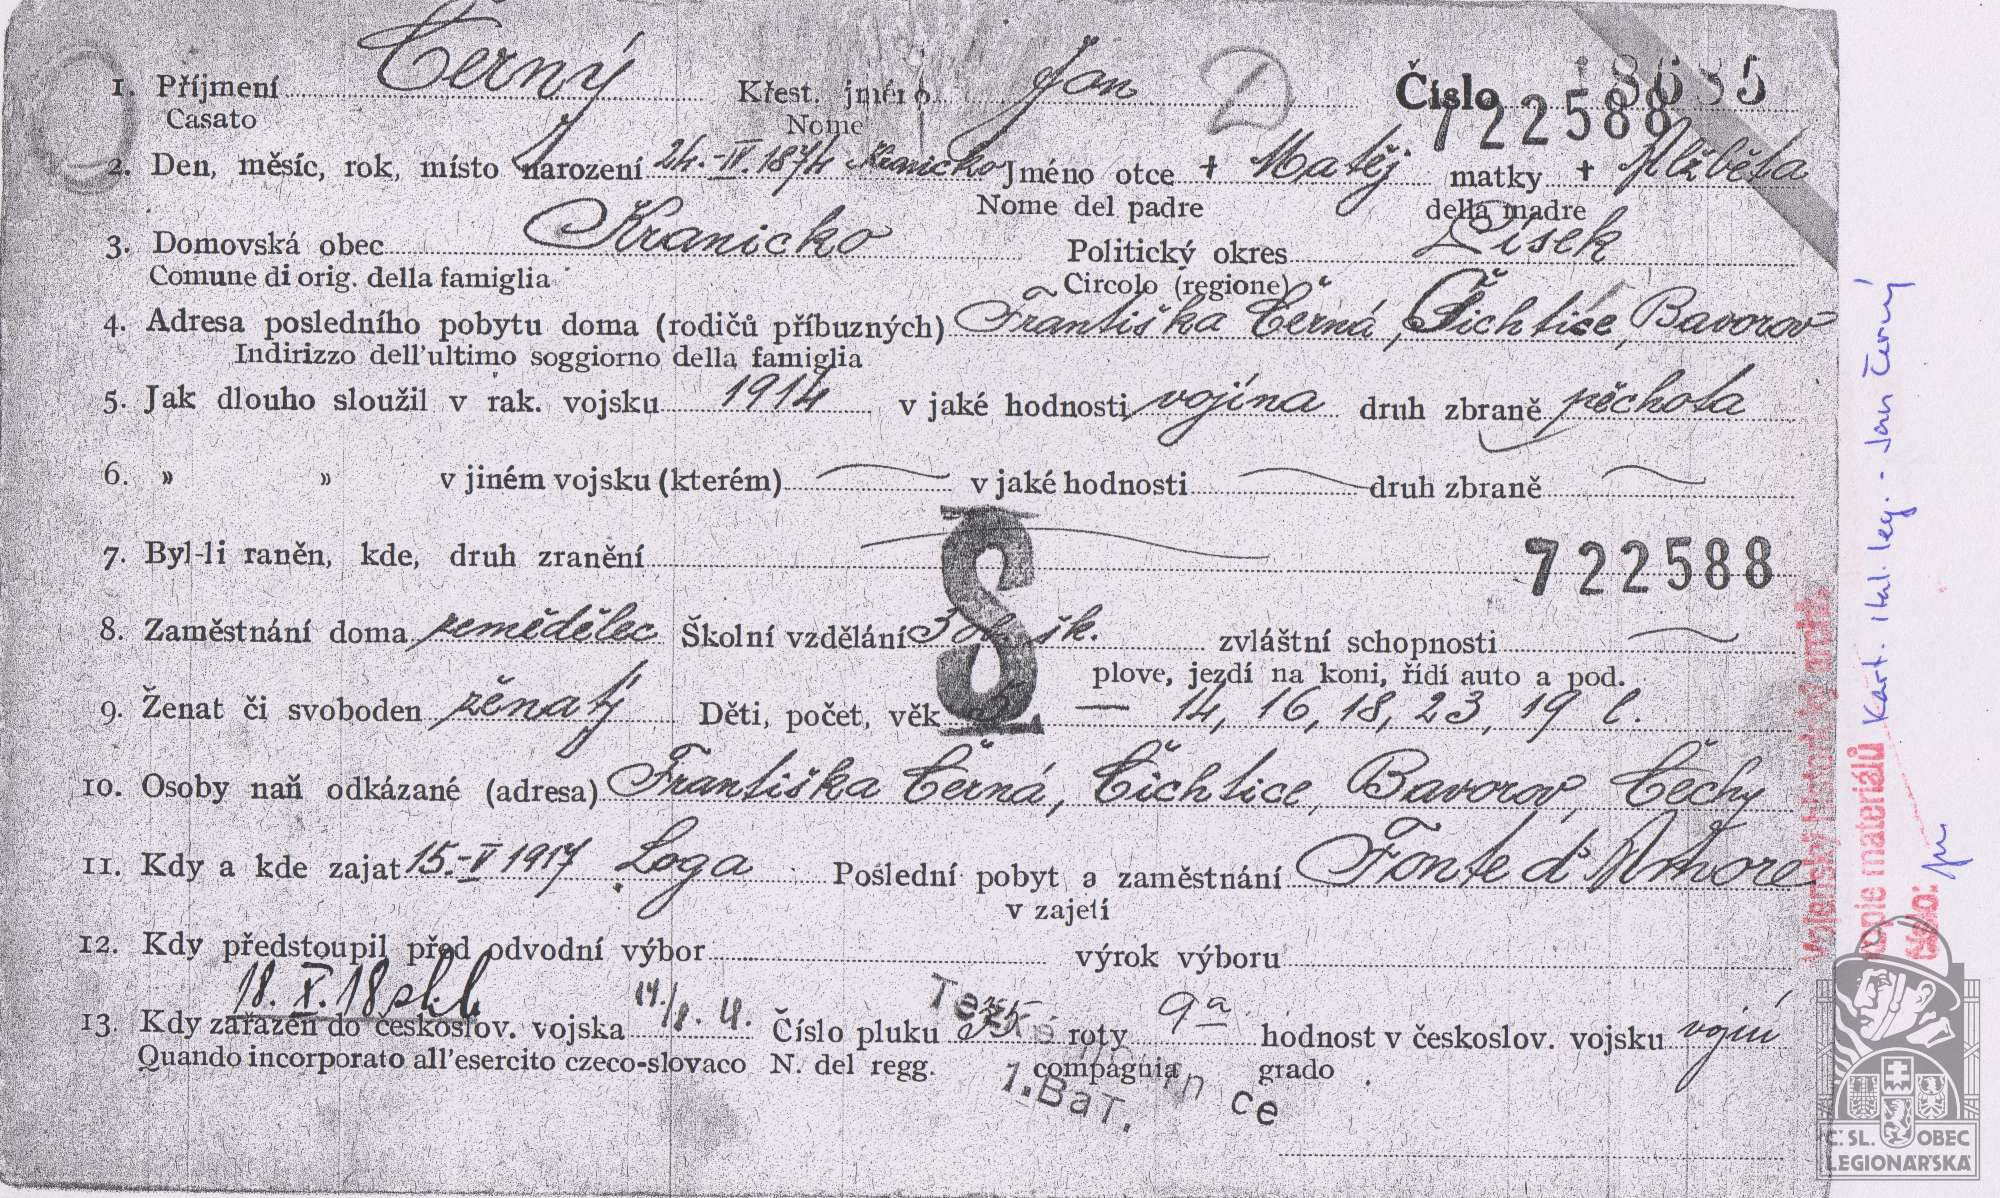 1. Příjmení Černý Křest. jméno Jan D Číslo
Casato Nome 722588
2. Den, měsíc, rok, místo narození 24.-IV.1874 Kranicko Jméno otce + Matěj matky + Alžběta
Nome del padre della madre
3. Domovská obec Kranicko Politický okres Písek
Comune di orig. della famiglia Circolo (regione)
4. Adresa posledního pobytu doma (rodičů příbuzných) Františka Černá, Čichtice, Bavorov
Indirizzo dell'ultimo soggiorno della famiglia
5. Jak dlouho sloužil v rak. vojsku 1914 v jaké hodnosti vojína druh zbraně pěchota
6. » » v jiném vojsku (kterém) v jaké hodnosti druh zbraně
7. Byl-li raněn, kde, druh zranění 722588
S
8. Zaměstnání doma zemědělec Školní vzdělání 3 šk. zvláštní schopnosti
plove, jezdí na koni, řídí auto a pod.
9. Ženat či svoboden ženatý Děti, počet, věk 5 — 14, 16, 18, 23, 19 l.
10. Osoby naň odkázané (adresa) Františka Černá, Čichtice, Bavorov, Čechy
11. Kdy a kde zajat 15.-V 1917 Loga Poslední pobyt a zaměstnání Fonte d'Amore
v zajetí
12. Kdy předstoupil před odvodní výbor výrok výboru
18. X. 18
13. Kdy zařazen do českoslov. vojska Číslo pluku 35 roty 9a hodnost v českoslov. vojsku vojín
Quando incorporato all'esercito czeco-slovaco N. del regg. compagnia grado
1. BaT. ce
Vojenský historický archiv
kopie materiálů Kart. ital. leg. - Jan Černý
Č. SL. OBEC
LEGIONÁŘSKÁ